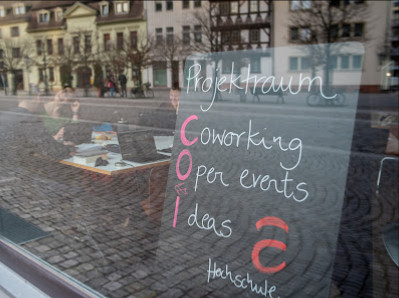 Projektraum
Coworking
Oper events
Ideas
Hochschule